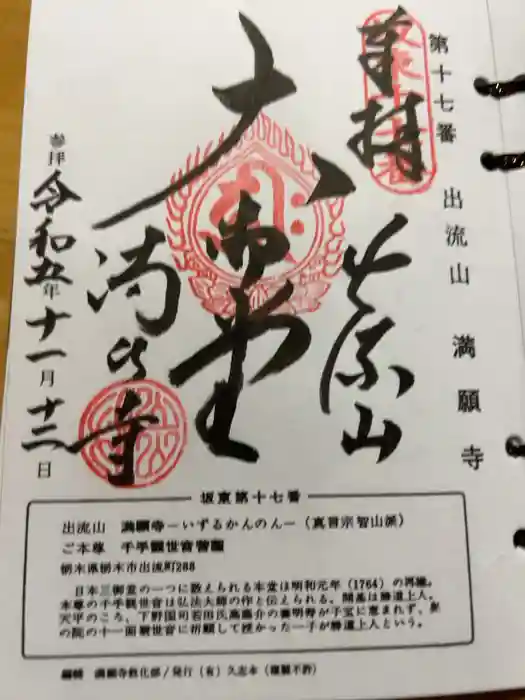 第十七番 出流山 満願寺
奉拝
坂東十七番
出流山
大御堂
満願寺
参拝 令和五年十一月十二日
坂東第十七番
出流山 満願寺－いずるかんのん－（真言宗智山派）
ご本尊 千手観世音菩薩
栃木県栃木市出流町288
日本三御堂の一つに数えられる本堂は明和元年（1764）の再建。
本尊の千手観世音は弘法大師の作と伝えられる。開基は勝道上人。
天平のころ、下野国司若田氏高藤介の妻明寿が子宝に恵まれず、
の院の十一面観世音に祈願して授かった一子が勝道上人という。
編輯 満願寺教化部／発行（有）久志本（複製不許）